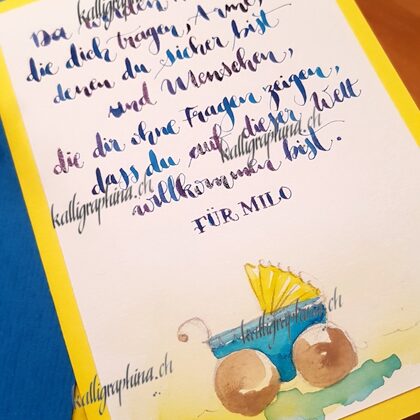 kalligraphina.ch
Da
die dich tragen, Arme,
denen du sicher bist
und Menschen,
die dir ohne Fragen zeigen,
kalligraphina.ch
dass du auf dieser Welt
kalligraphina.ch
willkommen bist.
FÜR MILO
kalligraphina.ch
kalligraphina.ch